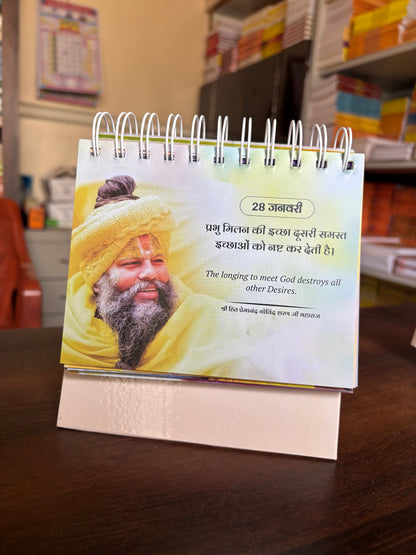 28 जनवरी
प्रभु मिलन की इच्छा दूसरी समस्त
इच्छाओं को नष्ट कर देती है।
The longing to meet God destroys all
other Desires.
श्री हित प्रेमानंद गोविंद शरण जी महाराज